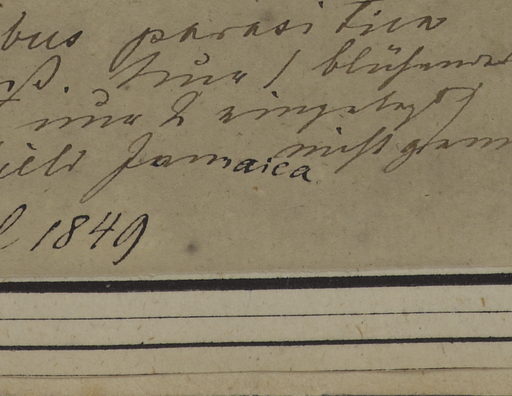 bus parasitica
ß. Nur 1 blühende
nur 2 eingelegt
field Jamaica nicht gem
l 1849